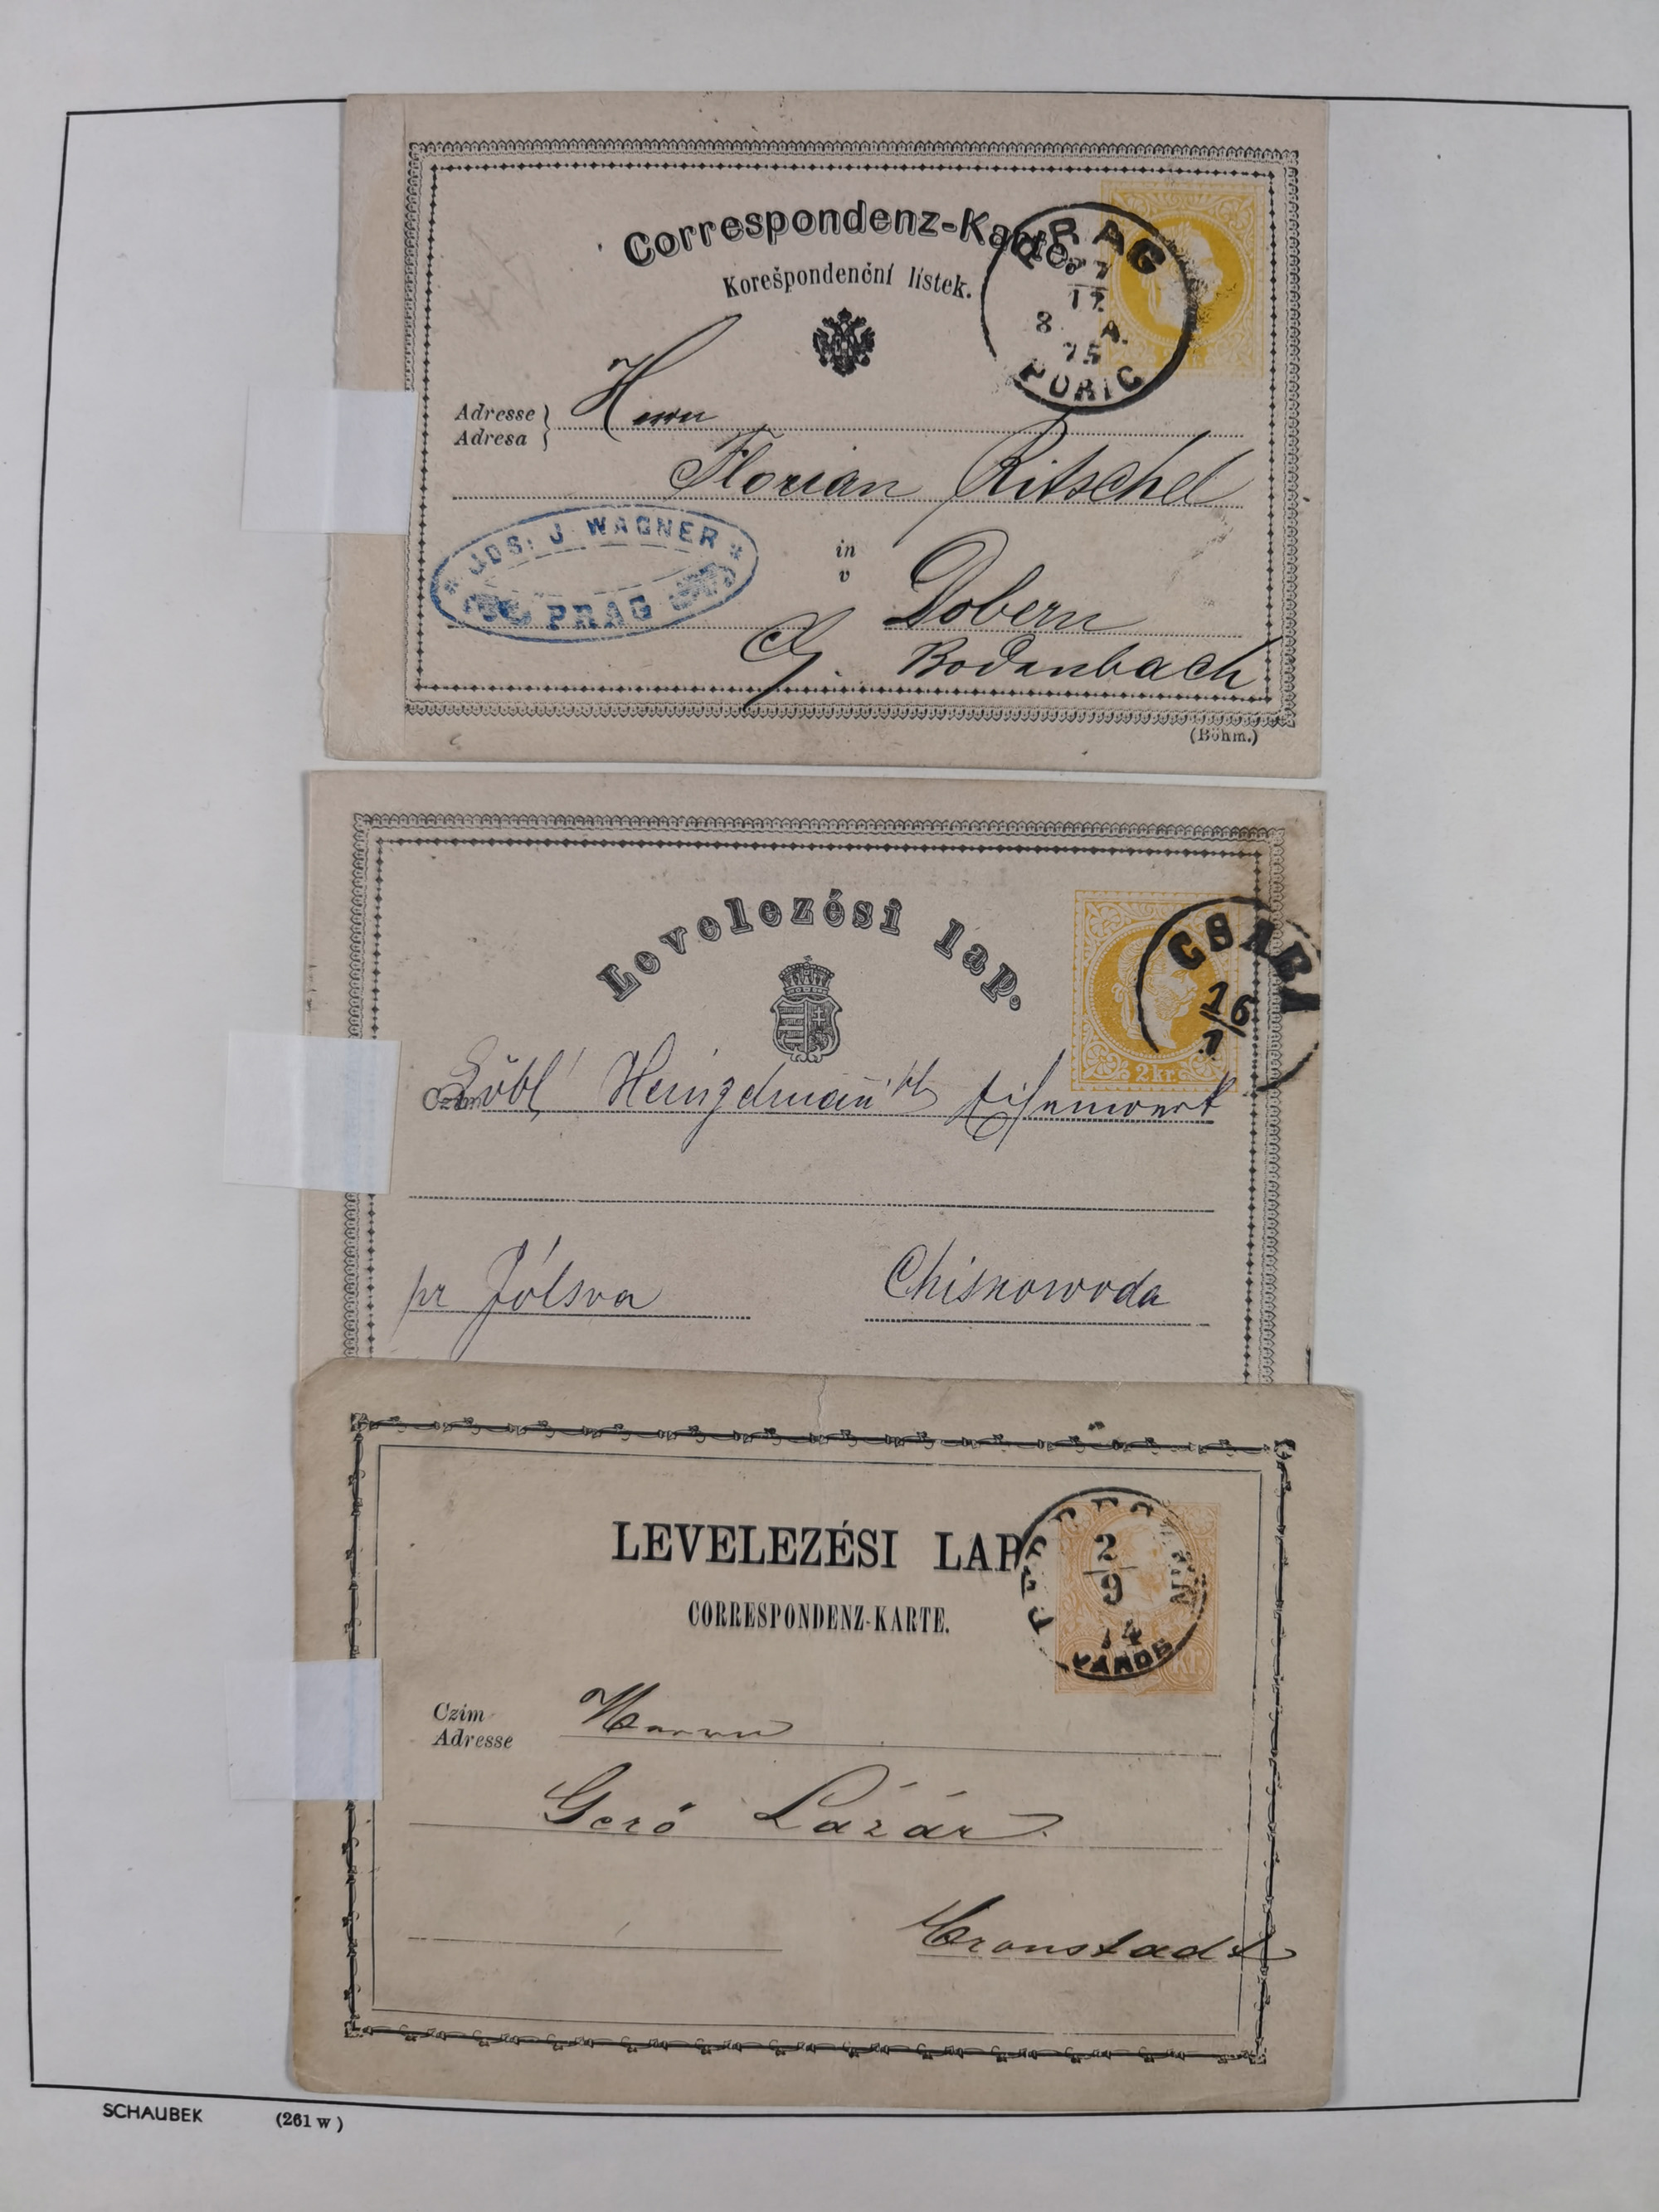 Correspondenz-Karte.
Korešpondenční lístek.
PRAG
12
8 A.
75
PORIC
Adresse
Adresa
Herrn
Florian Ritschel
JOS. J. WAGNER
PRAG
in
v
Dobern
Bodenbach
(Böhm.)
Levelezési lap.
CSABA
16
7
2 kr.
Löbl Heinzelmann
pr Jólsva
Chisnowoda
LEVELEZÉSI LAP
CORRESPONDENZ-KARTE.
2
9
74
VÁROS
kr.
Czim
Adresse
Herrn
Gerö Lázár
Kronstadt
SCHAUBEK (261 w)